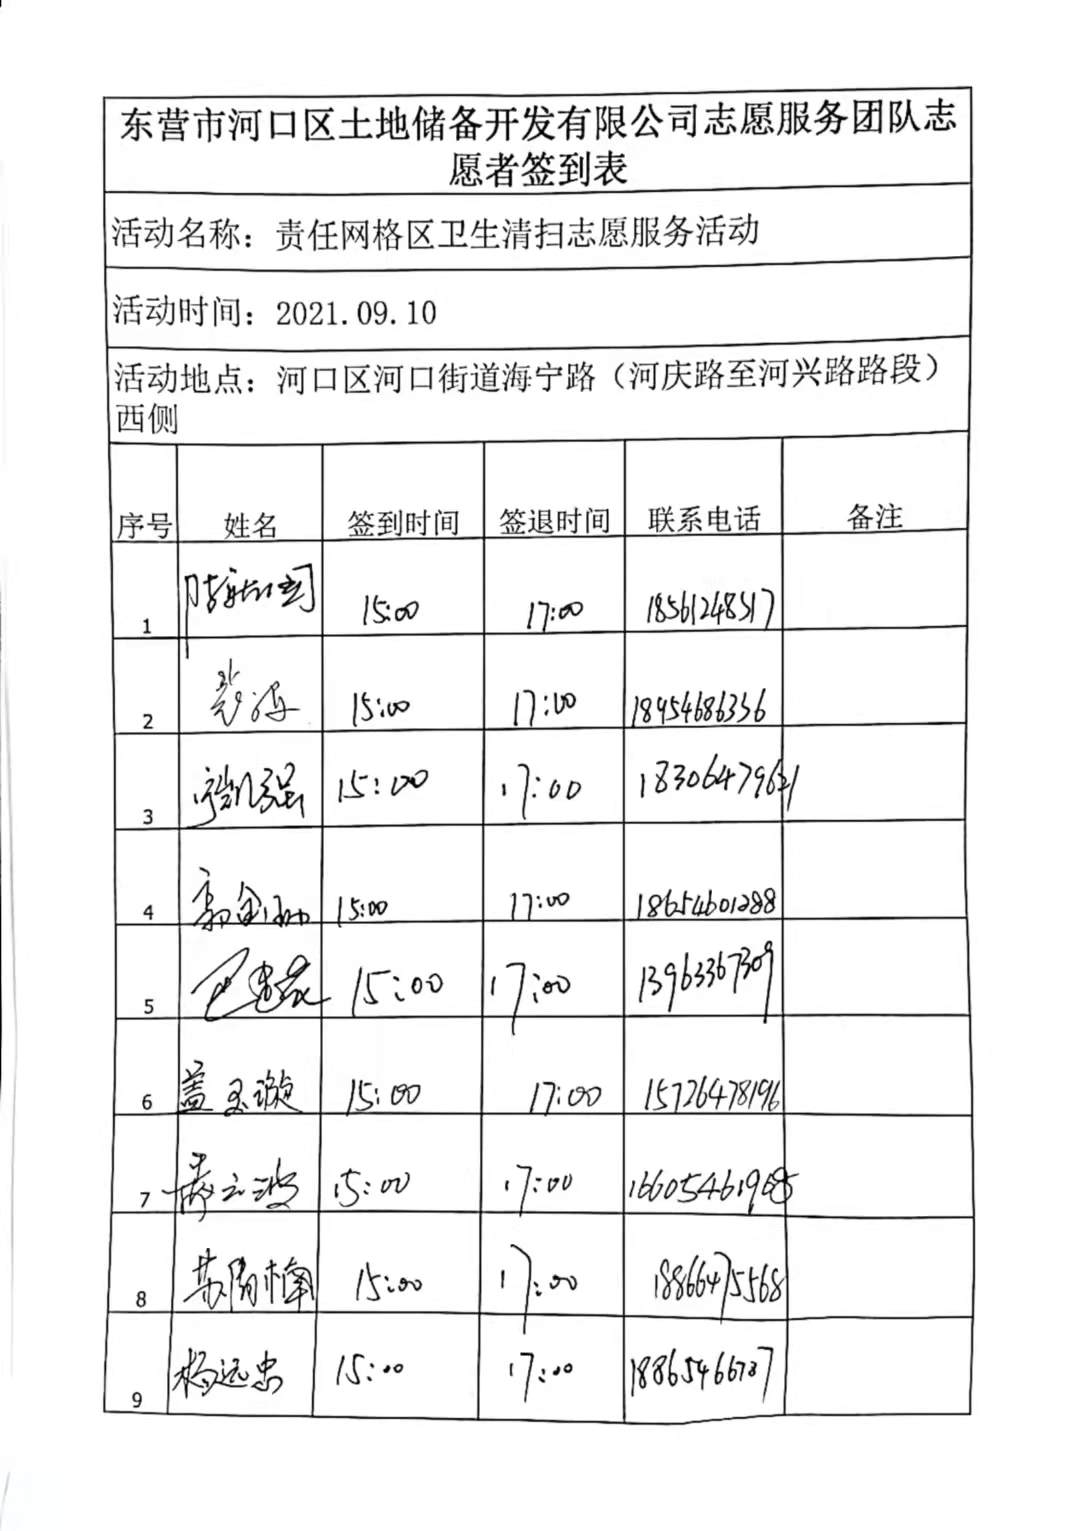 东营市河口区土地储备开发有限公司志愿服务团队志
愿者签到表
活动名称：责任网格区卫生清扫志愿服务活动
活动时间：2021.09.10
活动地点：河口区河口街道海宁路（河庆路至河兴路路段）
西侧
序号 姓名 签到时间 签退时间 联系电话 备注
1 15:00 17:00 18561248517
2 15:00 17:00 18954686336
3 15:00 17:00
4 15:00 17:00 18654601288
5 15:00 17:00 13963367309
6 盖玉璇 15:00 17:00 15726478196
7 15:00 17:00
8 15:00 17:00 18866475568
9 杨远忠 15:00 17:00